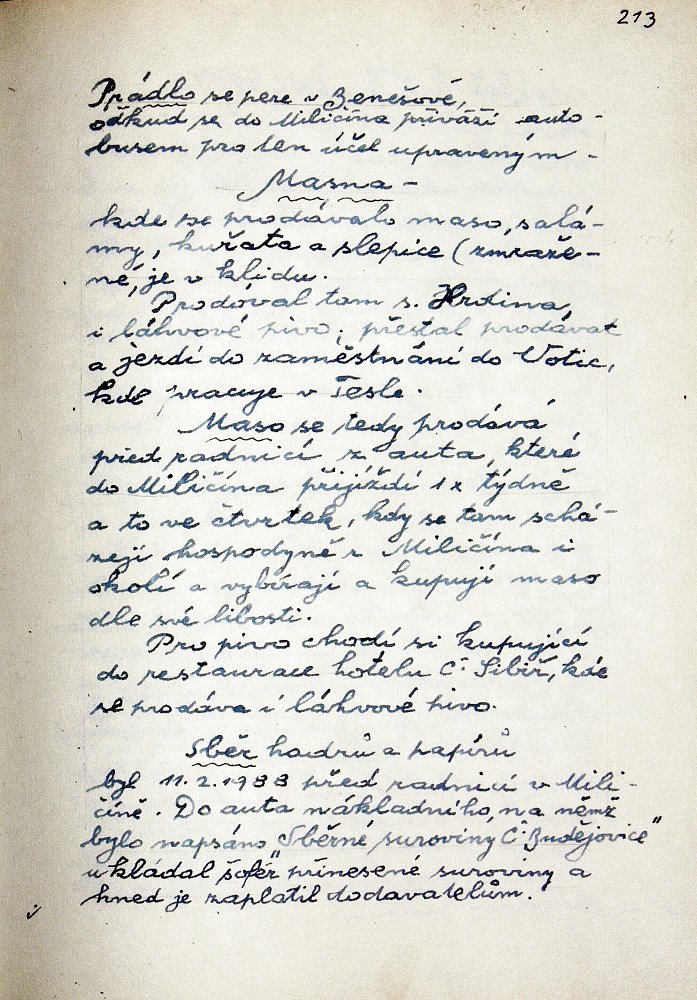 213
Prádlo se pere v Benešově,
odkud se do Miličína přiváží auto-
busem pro ten účel upraveným -
Masna -
kde se prodávalo maso, salá-
my, kuřata a slepice (zmraže-
né, je v klidu.
Prodával tam s. Hrdina,
i láhvové pivo; přestal prodávat
a jezdí do zaměstnání do Votic,
kde pracuje v Tesle.
Maso se tedy prodává
před radnicí z auta, které
do Miličína přijíždí 1x týdně
a to ve čtvrtek, kdy se tam schá-
zejí hospodyně z Miličína i
okolí a vybírají a kupují maso
dle své libosti.
Pro pivo chodí si kupující
do restaurace hotelu Č. Sibiř, kde
se prodáva i láhvové pivo.
Sběr hadrů a papírů
byl 11.2.1988 před radnicí v Mili-
číně. Do auta nákladního, na němž
bylo napsáno "Sběrné suroviny Č. Budějovice"
ukládal šofér přinesené suroviny a
hned je zaplatil dodavatelům.